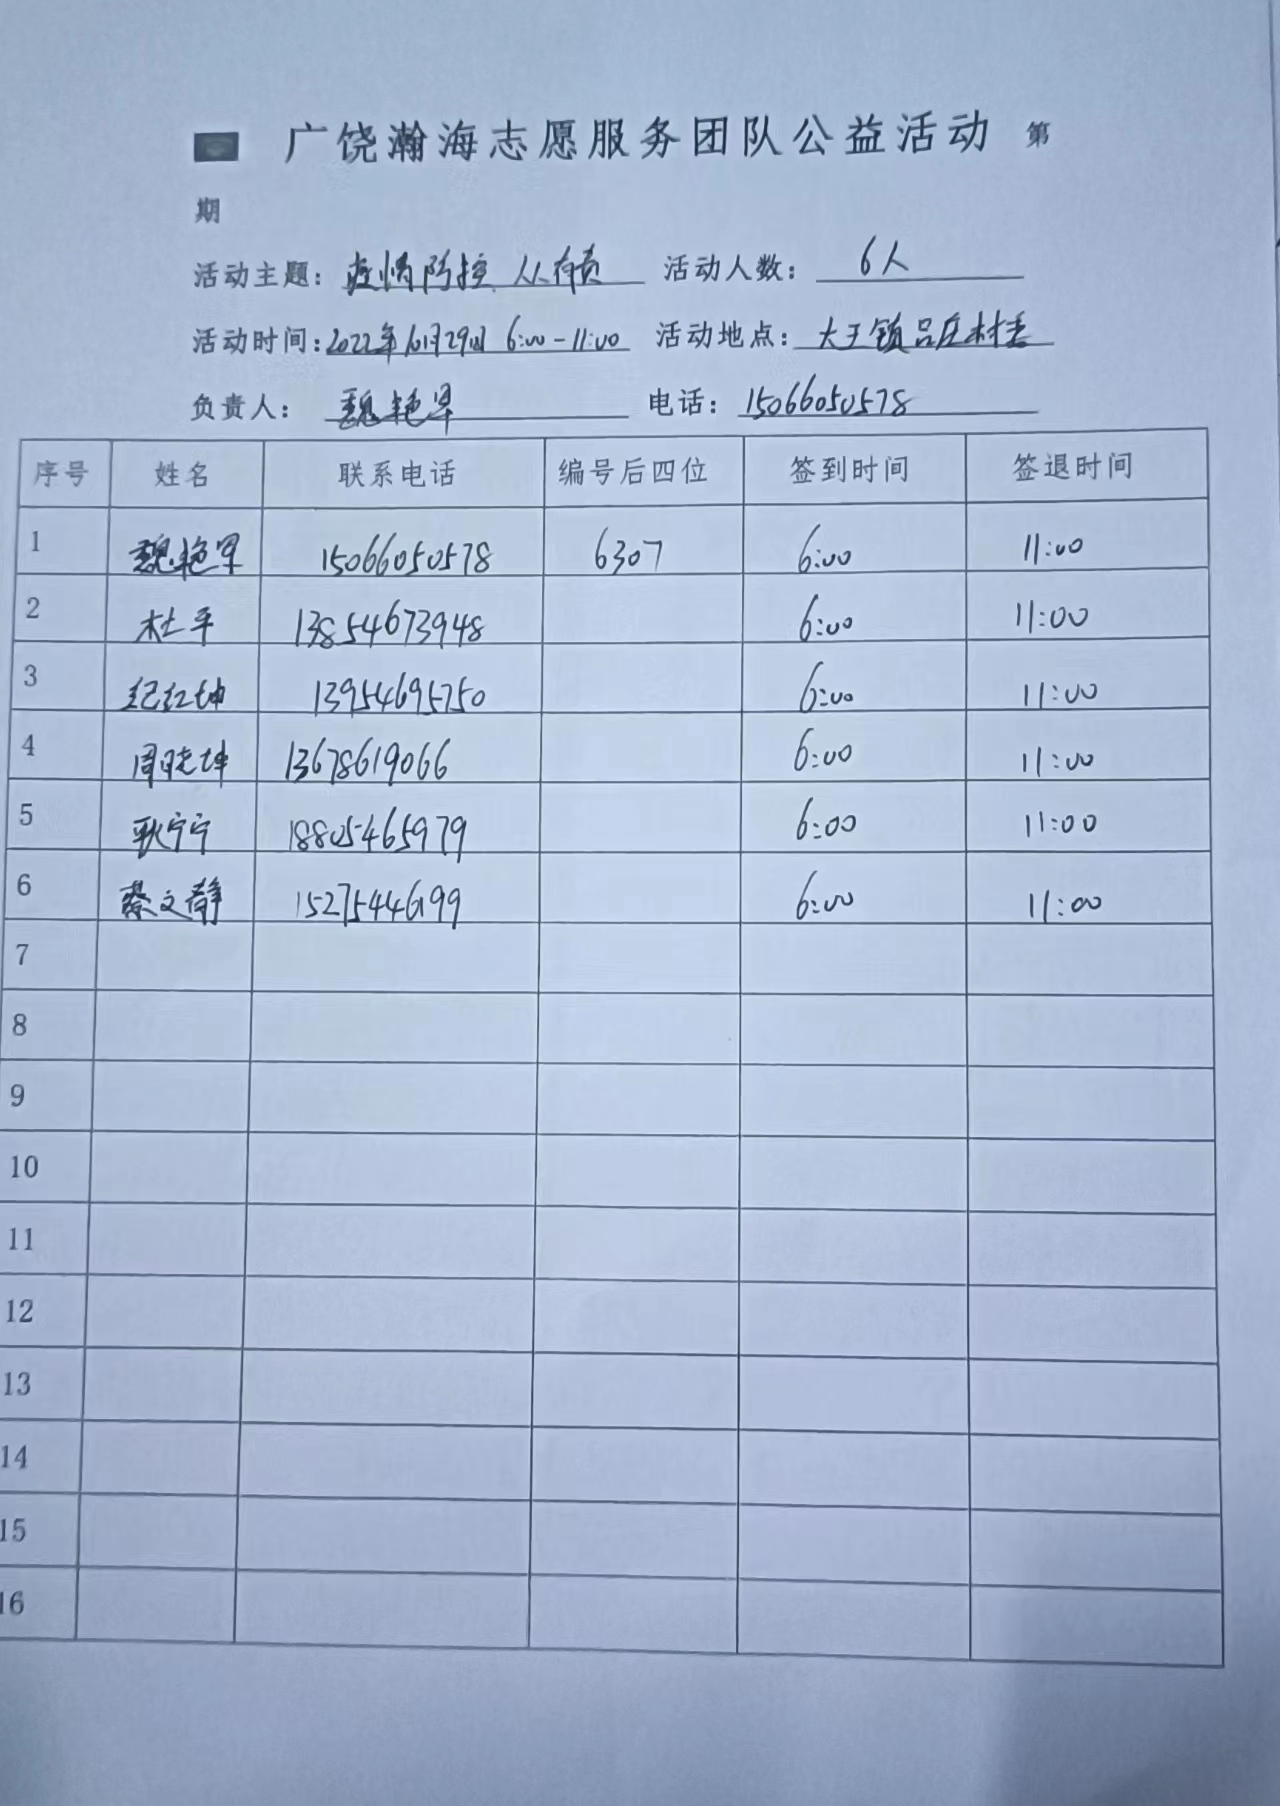 广饶瀚海志愿服务团队公益活动 第
期
活动主题：疫情防控 人人有责 活动人数： 6人
活动时间：2022年10月29日 6:00-11:00 活动地点：大王镇吕庄村委
负责人： 魏艳军 电话：15066050578
序号 姓名 联系电话 编号后四位 签到时间 签退时间
1 魏艳军 15066050578 6307 6:00 11:00
2 杜平 13854673948 6:00 11:00
3 纪红坤 13954695750 6:00 11:00
4 周晓坤 13678619066 6:00 11:00
5 耿宁宁 18805465979 6:00 11:00
6 蔡文静 15275446199 6:00 11:00
7
8
9
10
11
12
13
14
15
16